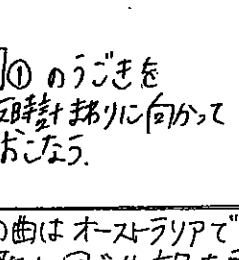 ① のうごきを
反時計まわりに向かって
おこなう.
の曲はオーストラリアで